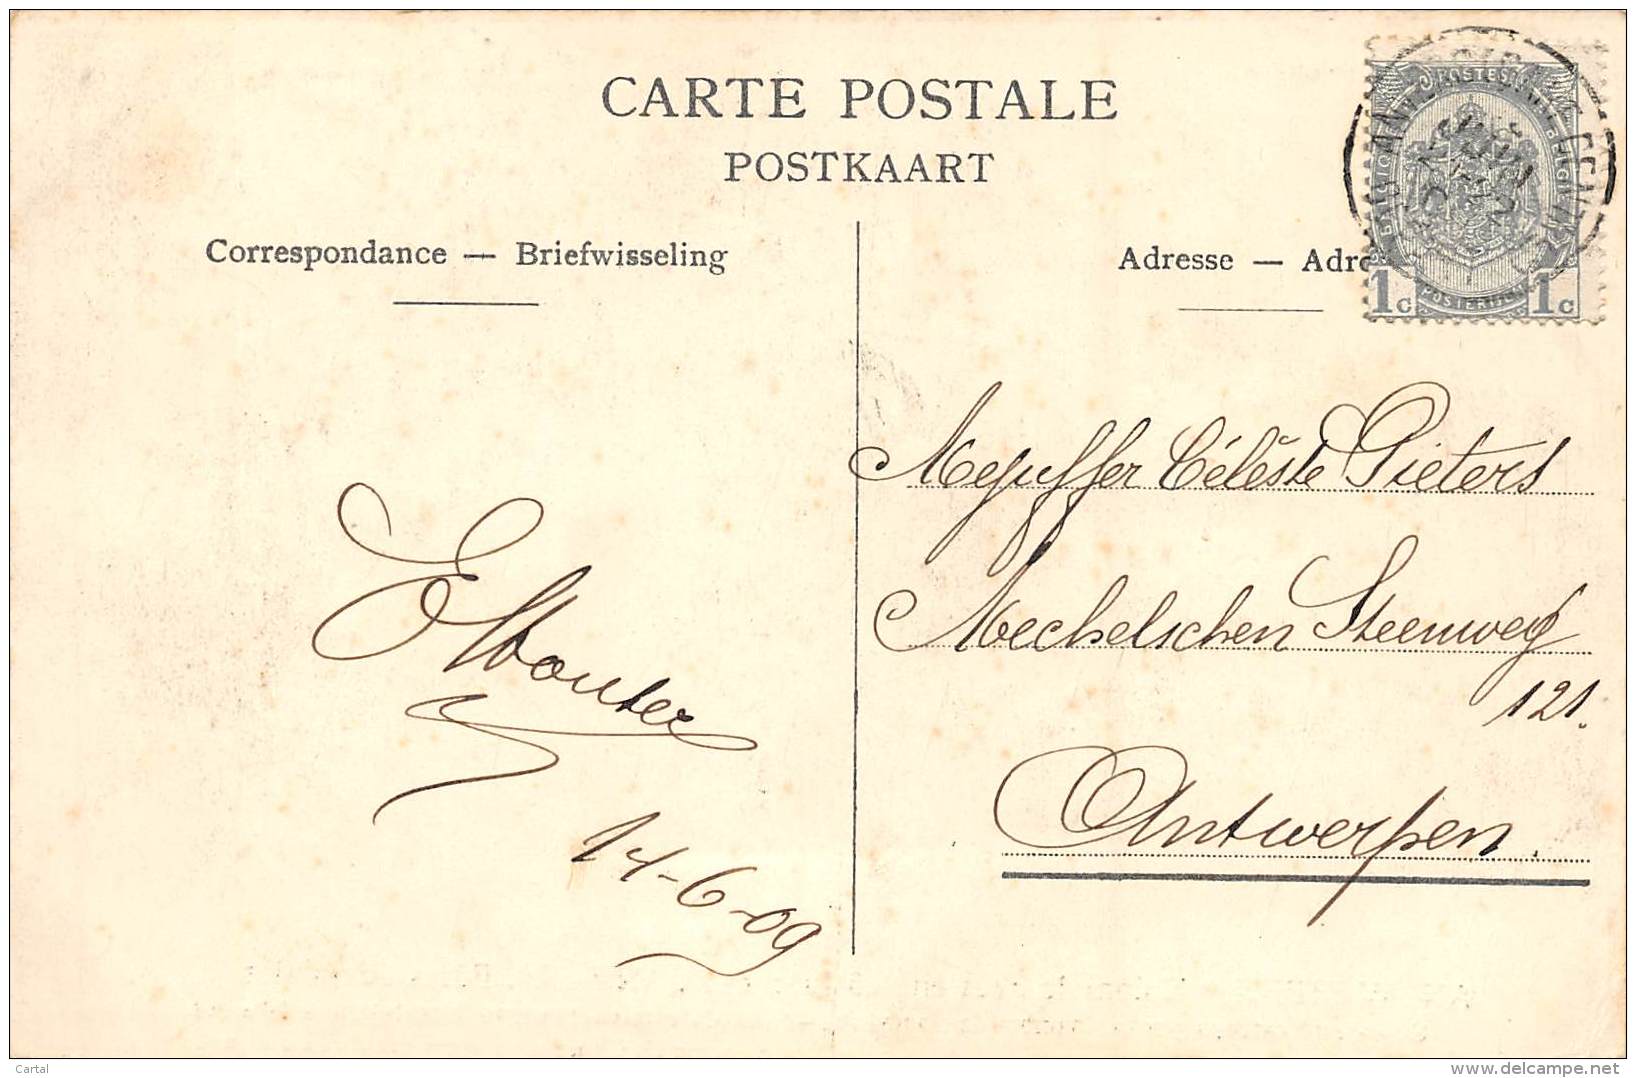 CARTE POSTALE
POSTKAART
Correspondance — Briefwisseling
Adresse — Adre
POSTES
1c 1c
Mejuffer Céleste Pieters
Mechelschen Steenweg
121.
Antwerpen.
14-6-09
Cartal
delcampe.net